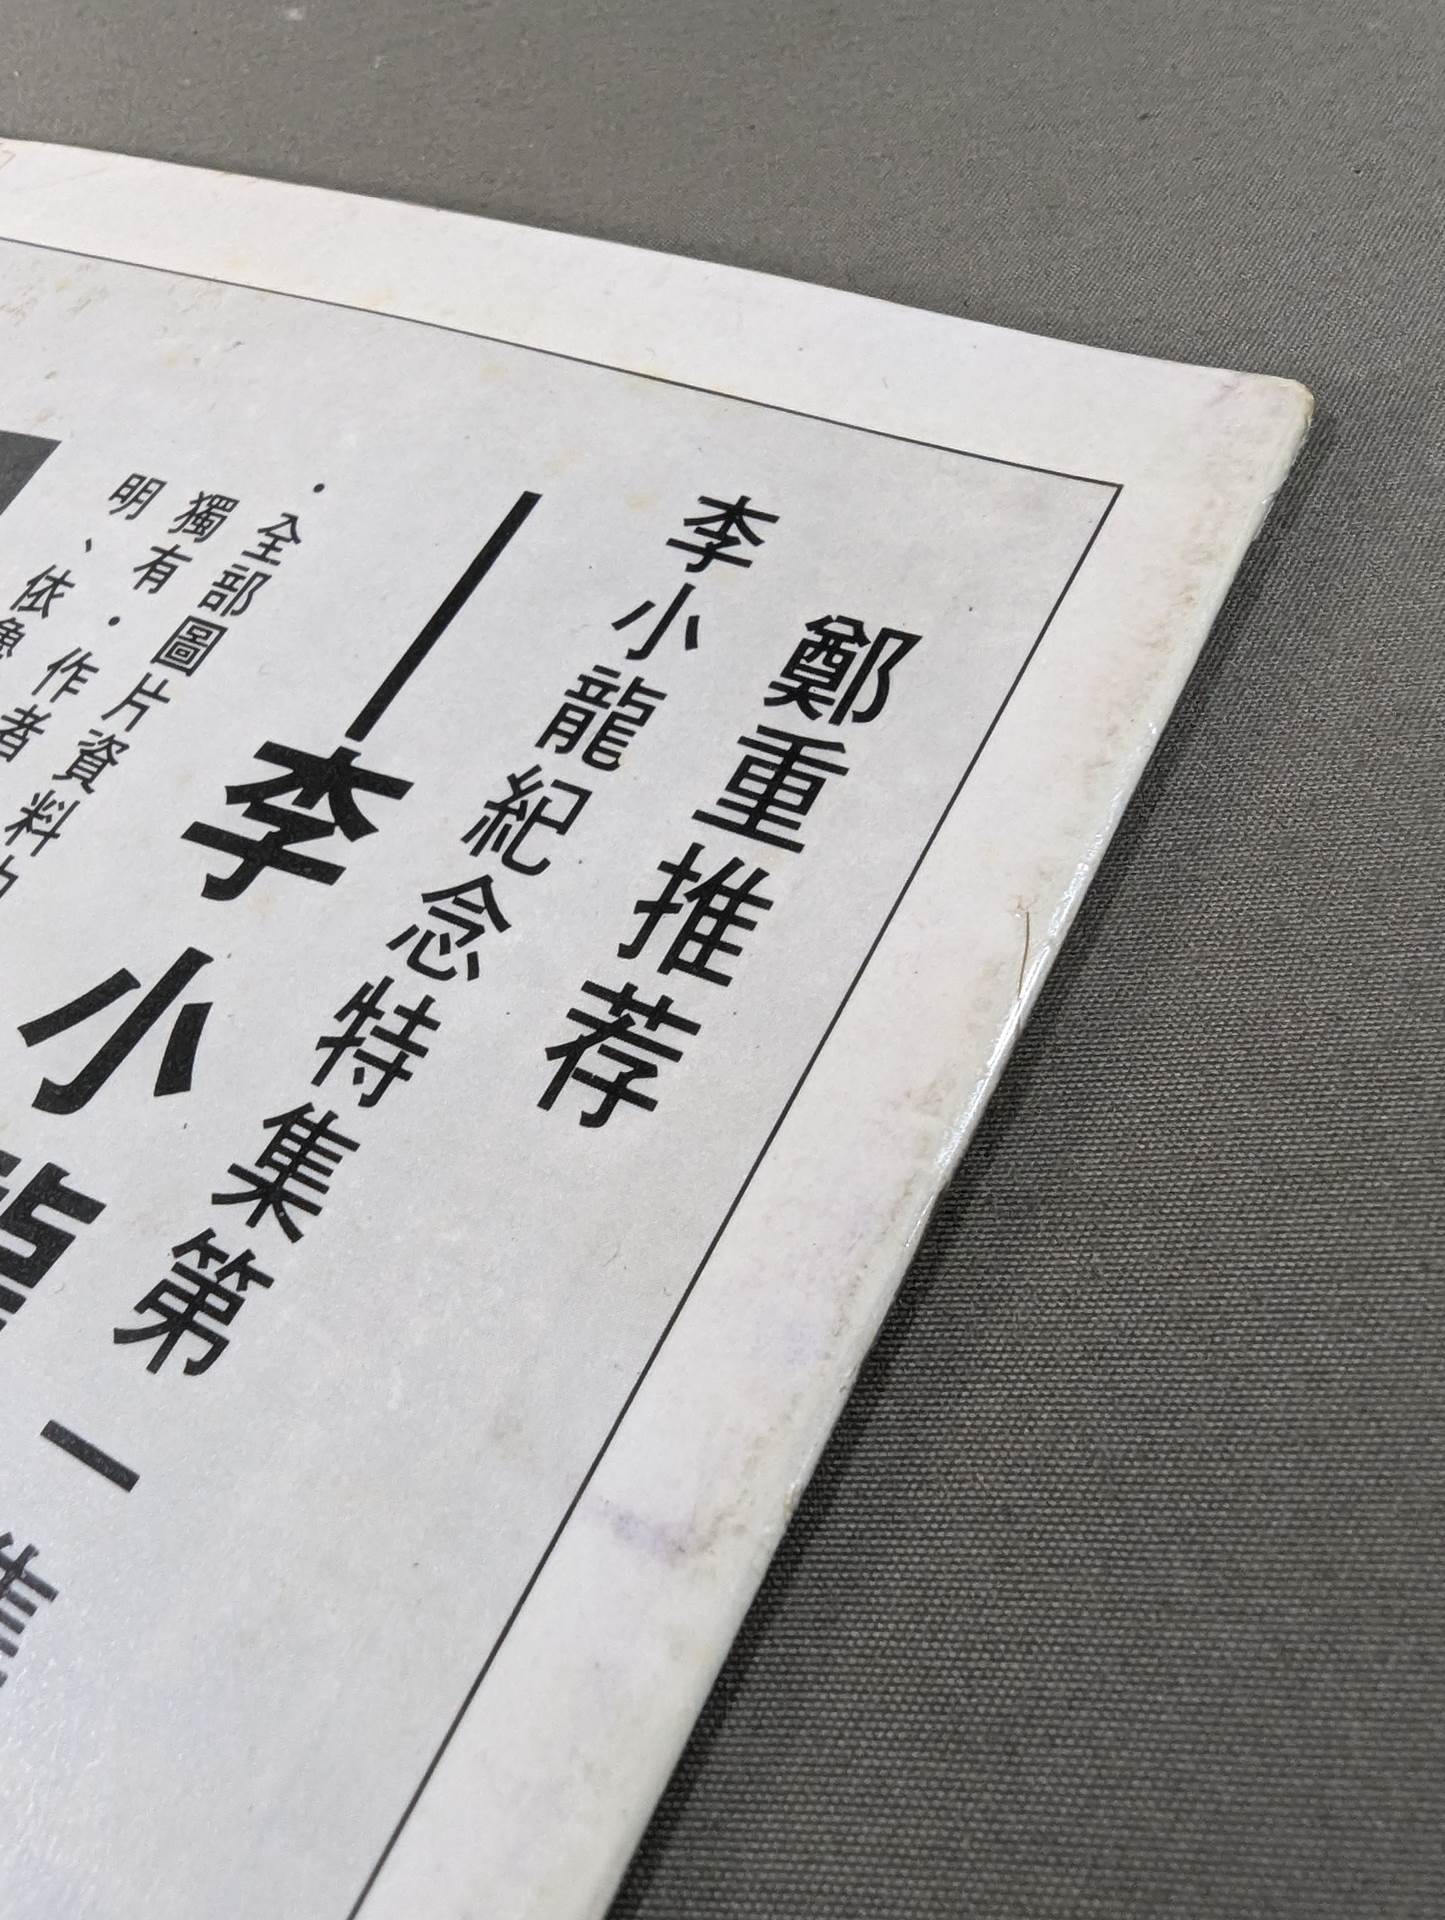 鄭重推荐
李小龍紀念特集第一集
李小龍
・全部圖片資料由
獨有・作者
明、依